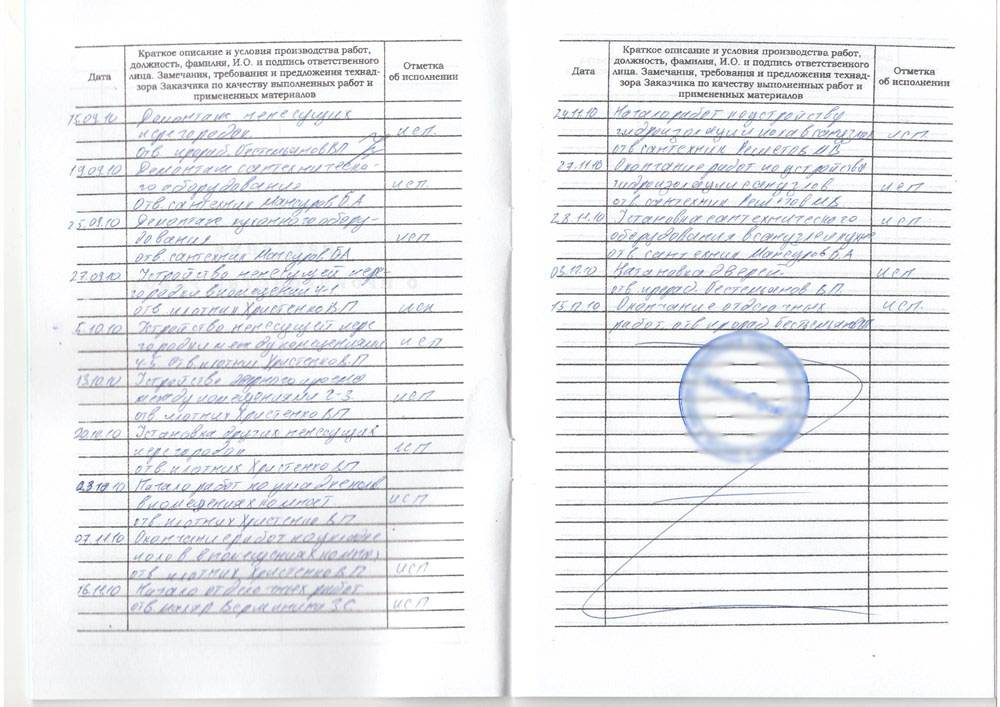 Дата
Краткое описание и условия производства работ,
должность, фамилия, И.О. и подпись ответственного
лица. Замечания, требования и предложения технад-
зора Заказчика по качеству выполненных работ и
примененных материалов
Отметка
об исполнении
15.09.10 Демонтаж ненесущих
перегородок исп.
отв. прораб. Бестемьянов В.П.
19.09.10 Демонтаж сантехническо-
го оборудования исп.
Отв. сантехник Мансуров Б.А.
25.09.10 Демонтаж кухонного обору-
дования исп
отв. сантехник Мансуров Б.А.
27.09.10 Устройство ненесущей пере-
городки в помещении
отв. плотник Христенко В.П. исп
5.10.10 Устройство ненесущей пере
городки между помещениями исп
4-5 Отв. плотник Христенко В.П.
13.10.10 Устройство дверного проема
между помещениями 2-3 исп
отв. плотник Христенко В.П
20.10.10 Установка других ненесущих
перегородок исп
отв. плотник Христенко В.П
03.11.10 Начало работ по укладке полов
в помещениях комнат исп
отв. плотник Христенко В.П.
07.11.10 Окончание работ по укладке
полов в помещениях комнат
отв. плотник Христенко В.П. исп
16.11.10 Начало отделочных работ
отв. маляр З.С. исп
Дата
Краткое описание и условия производства работ,
должность, фамилия, И.О. и подпись ответственного
лица. Замечания, требования и предложения технад-
зора Заказчика по качеству выполненных работ и
примененных материалов
Отметка
об исполнении
24.11.10 Начало работ по устройству
гидроизоляции пола в санузлах исп.
отв. сантехник Решетов М.В.
27.11.10 Окончание работ по устройству
гидроизоляции санузлов исп
отв. сантехник Решетов М.В.
28.11.10 Установка сантехнического исп
оборудования в санузле и кухне
отв. сантехник Мансуров Б.А.
03.12.10 дверей. исп
отв. прораб. Бестемьянов В.П.
15.12.10 Окончание отделочных исп.
работ. отв. прораб Бестемьянов